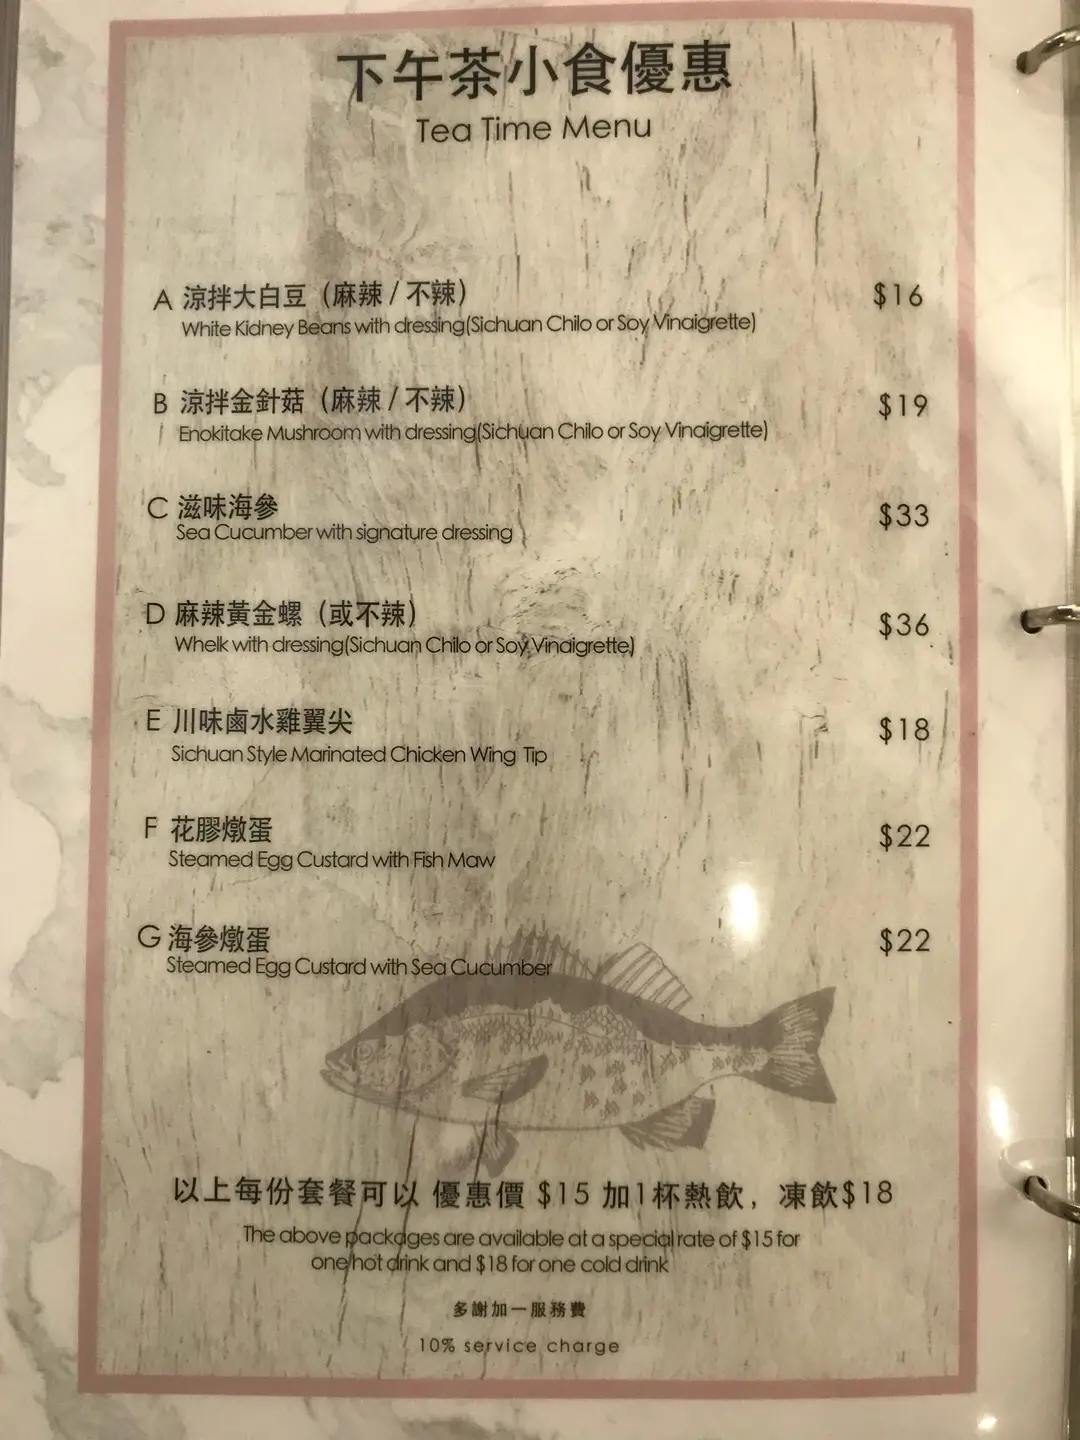 下午茶小食優惠
Tea Time Menu
A 涼拌大白豆（麻辣 / 不辣） $16
White Kidney Beans with dressing(Sichuan Chilo or Soy Vinaigrette)
B 涼拌金針菇（麻辣 / 不辣） $19
Enokitake Mushroom with dressing(Sichuan Chilo or Soy Vinaigrette)
C 滋味海參 $33
Sea Cucumber with signature dressing
D 麻辣黃金螺（或不辣） $36
Whelk with dressing(Sichuan Chilo or Soy Vinaigrette)
E 川味鹵水雞翼尖 $18
Sichuan Style Marinated Chicken Wing Tip
F 花膠燉蛋 $22
Steamed Egg Custard with Fish Maw
G 海參燉蛋 $22
Steamed Egg Custard with Sea Cucumber
以上每份套餐可以 優惠價 $15 加1杯熱飲，凍飲$18
The above packages are available at a special rate of $15 for
one hot drink and $18 for one cold drink
多謝加一服務費
10% service charge